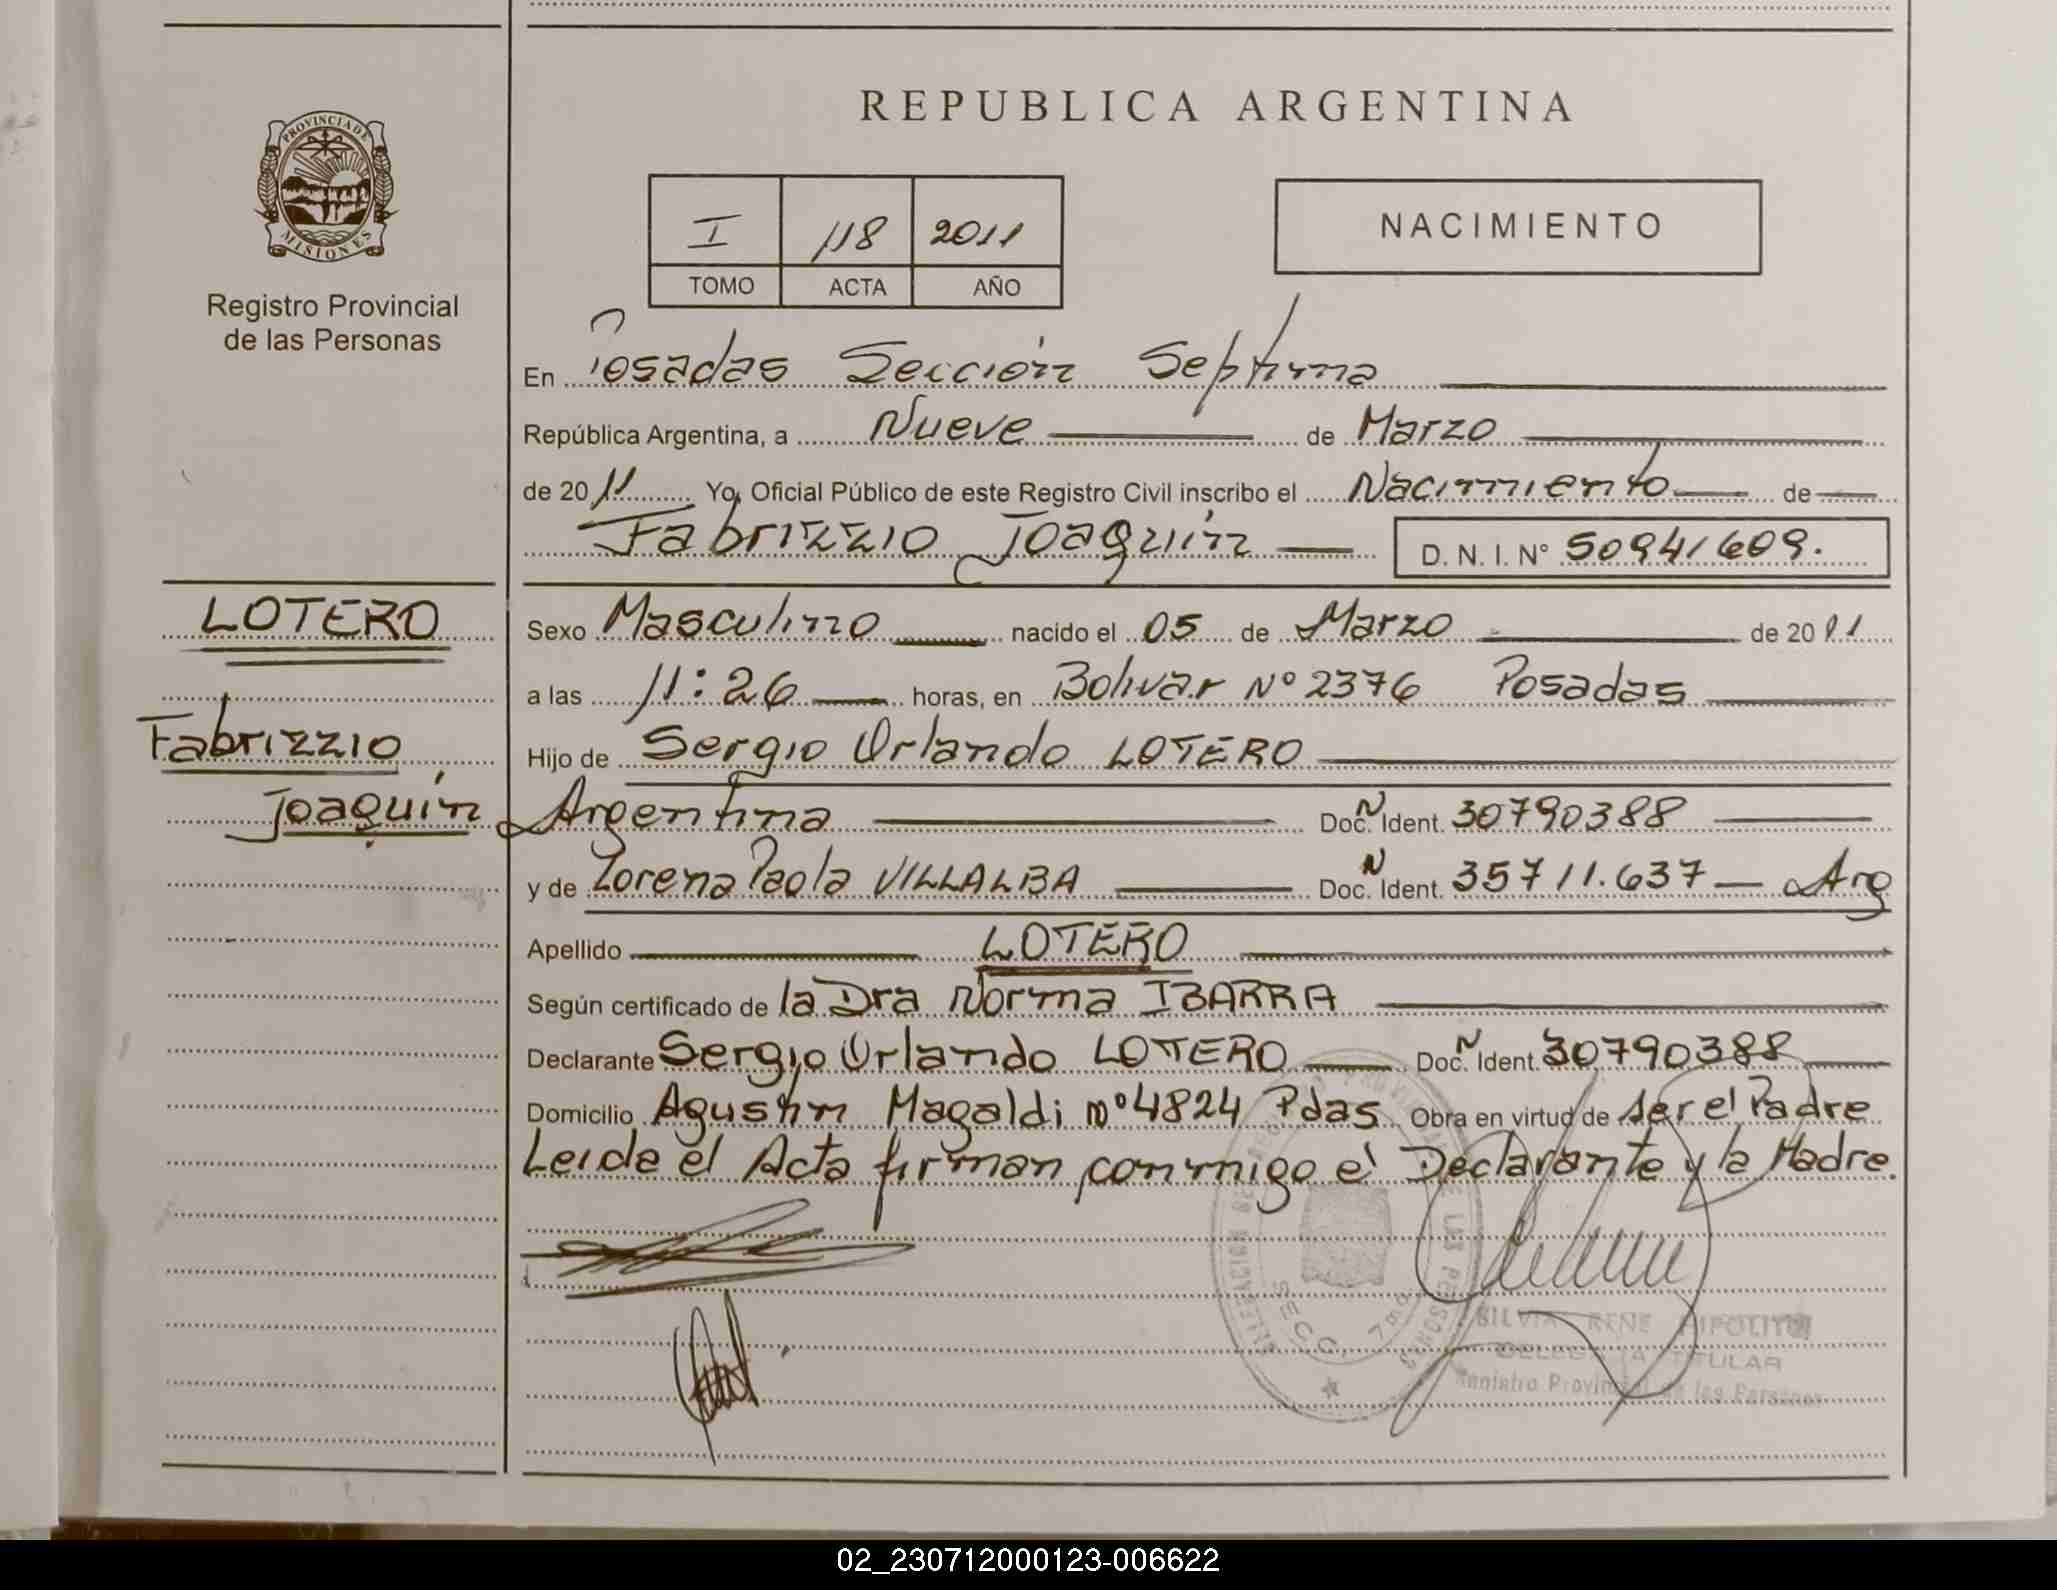 REPUBLICA ARGENTINA
PROVINCIA DE
MISIONES
Registro Provincial
de las Personas
I 118 2011
TOMO ACTA AÑO
NACIMIENTO
En Posadas Sección Septima
República Argentina, a Nueve de Marzo
de 2011 Yo, Oficial Público de este Registro Civil inscribo el Nacimiento de
Fabrizzio Joaquín D. N. I. N° 50941609.
LOTERO
Fabrizzio
Joaquín
Sexo Masculino nacido el 05 de Marzo de 2011
a las 11:26 horas, en Bolivar N° 2376 Posadas
Hijo de Sergio Orlando LOTERO
Argentina Doc. N Ident. 30790388
y de Lorena Paola VILLALBA Doc. N Ident. 35711.637 Arg
Apellido LOTERO
Según certificado de la Dra Norma IBARRA
Declarante Sergio Orlando LOTERO Doc. N Ident. 30790388
Domicilio Agustin Magaldi N° 4824 Pdas Obra en virtud de ser el Padre
Leida el Acta firman conmigo el Declarante y la Madre.
SECC. 7
SILVIA RENE HIPOLITO
DELEGADA TITULAR
Registro Provincial de las Personas
02_230712000123-006622